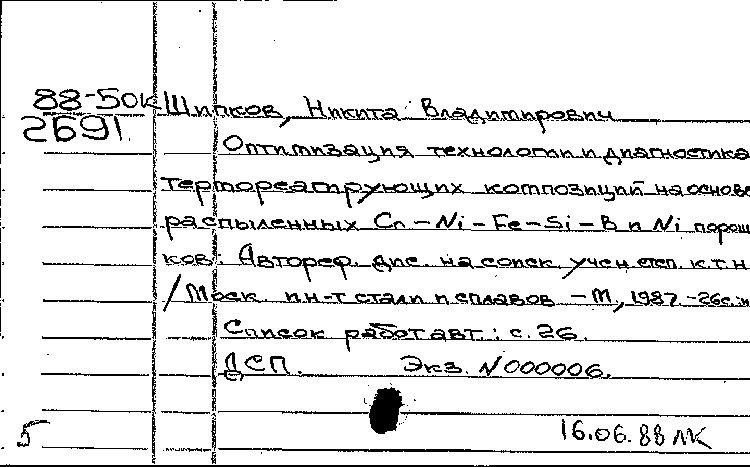 88-50к Шипков, Никита Владимирович
2691
Оптимизация технологии и диагностика
термореагирующих композиций на основе
распыленных Cr-Ni-Fe-Si-B и Ni порош
ков: Автореф. дис. на соиск. учен. степ. к.т.н
/Моск. ин-т стали и сплавов -М, 1987.-26с.
Список работ авт.: с. 26.
ДСП. Экз. N000006.
5
16.06.88 ЛК